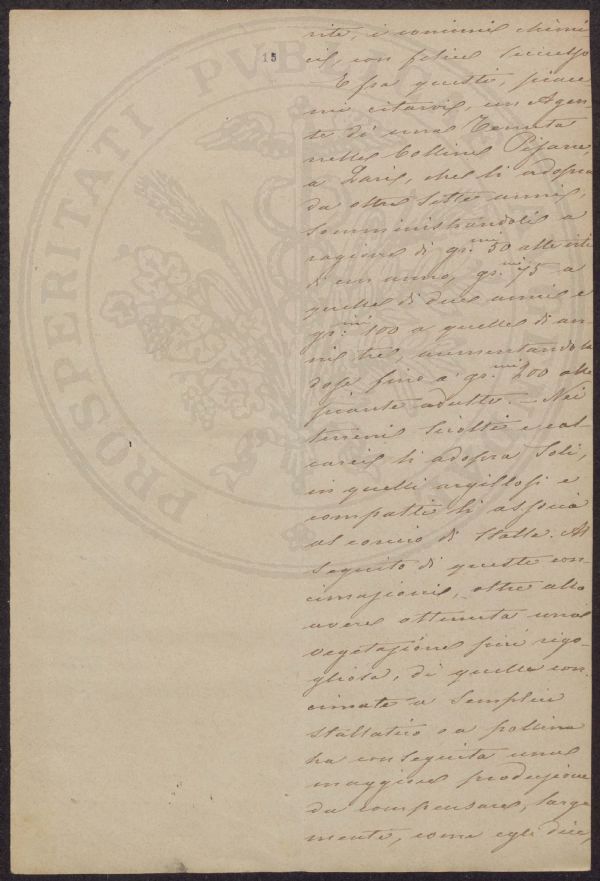 15
PROSPERITATI PVBL
rite, i concimi chimi
ci, con felice successo
E fra questi, piace
mi citarvi, un Agen-
te di una Tenuta
nelle Colline Pisane,
a Lari, che li adopra
da oltre sette anni,
somministrandoli a
ragione di gr.mi 50 alle viti
di un anno, gr.mi 75 a
quelle di due anni e
gr.mi 100 a quelle di an-
ni tre, aumentando la
dose fino a gr.mi 200 alle
piante adulte. - Nei
terreni sciolti e cal
carei li adopra soli,
in quelli argillosi e
compatti li associa
al concio di stalla. Al
seguito di queste con
cimazioni, oltre allo
avere ottenuta una
vegetazione più rigo-
gliosa, di quelle con-
cimate a semplice
stallatico o a pollina
ha conseguita una
maggiore produzione
da compensare, larga
mente, come egli dice,